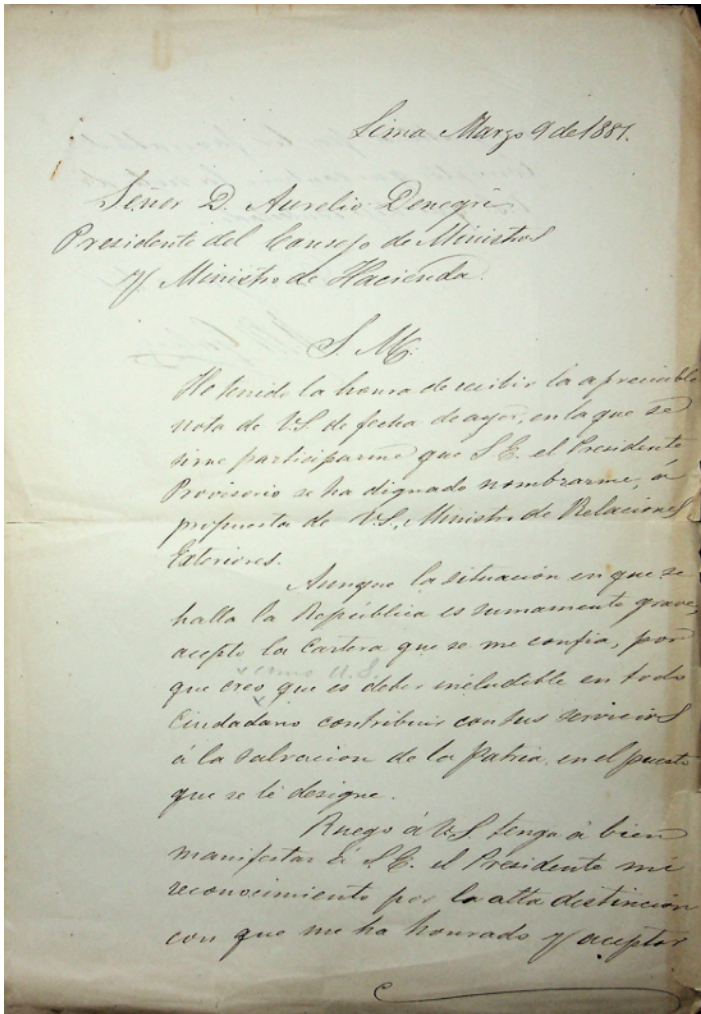 Lima Marzo 9 de 1881.
Señor D. Aurelio Denegri
Presidente del Consejo de Ministros
y Ministro de Hacienda.
S. M.
He tenido la honra de recibir la apreciable
nota de V.S. de fecha de ayer, en la que se
sirve participarme que S.E. el Presidente
Provisorio se ha dignado nombrarme, á
propuesta de V.S., Ministro de Relaciones
Exteriores.
Aunque la situacion en que se
halla la República es sumamente grave,
acepto la Cartera que se me confia, por
como U.S.
que creo que es deber ineludible en todo
Ciudadano contribuir con sus servicios
á la salvacion de la Patria, en el puesto
que se le designe.
Ruego á V.S. tenga á bien
manifestar á S.E. el Presidente mi
reconocimiento por la alta distincion
con que me ha honrado y aceptar